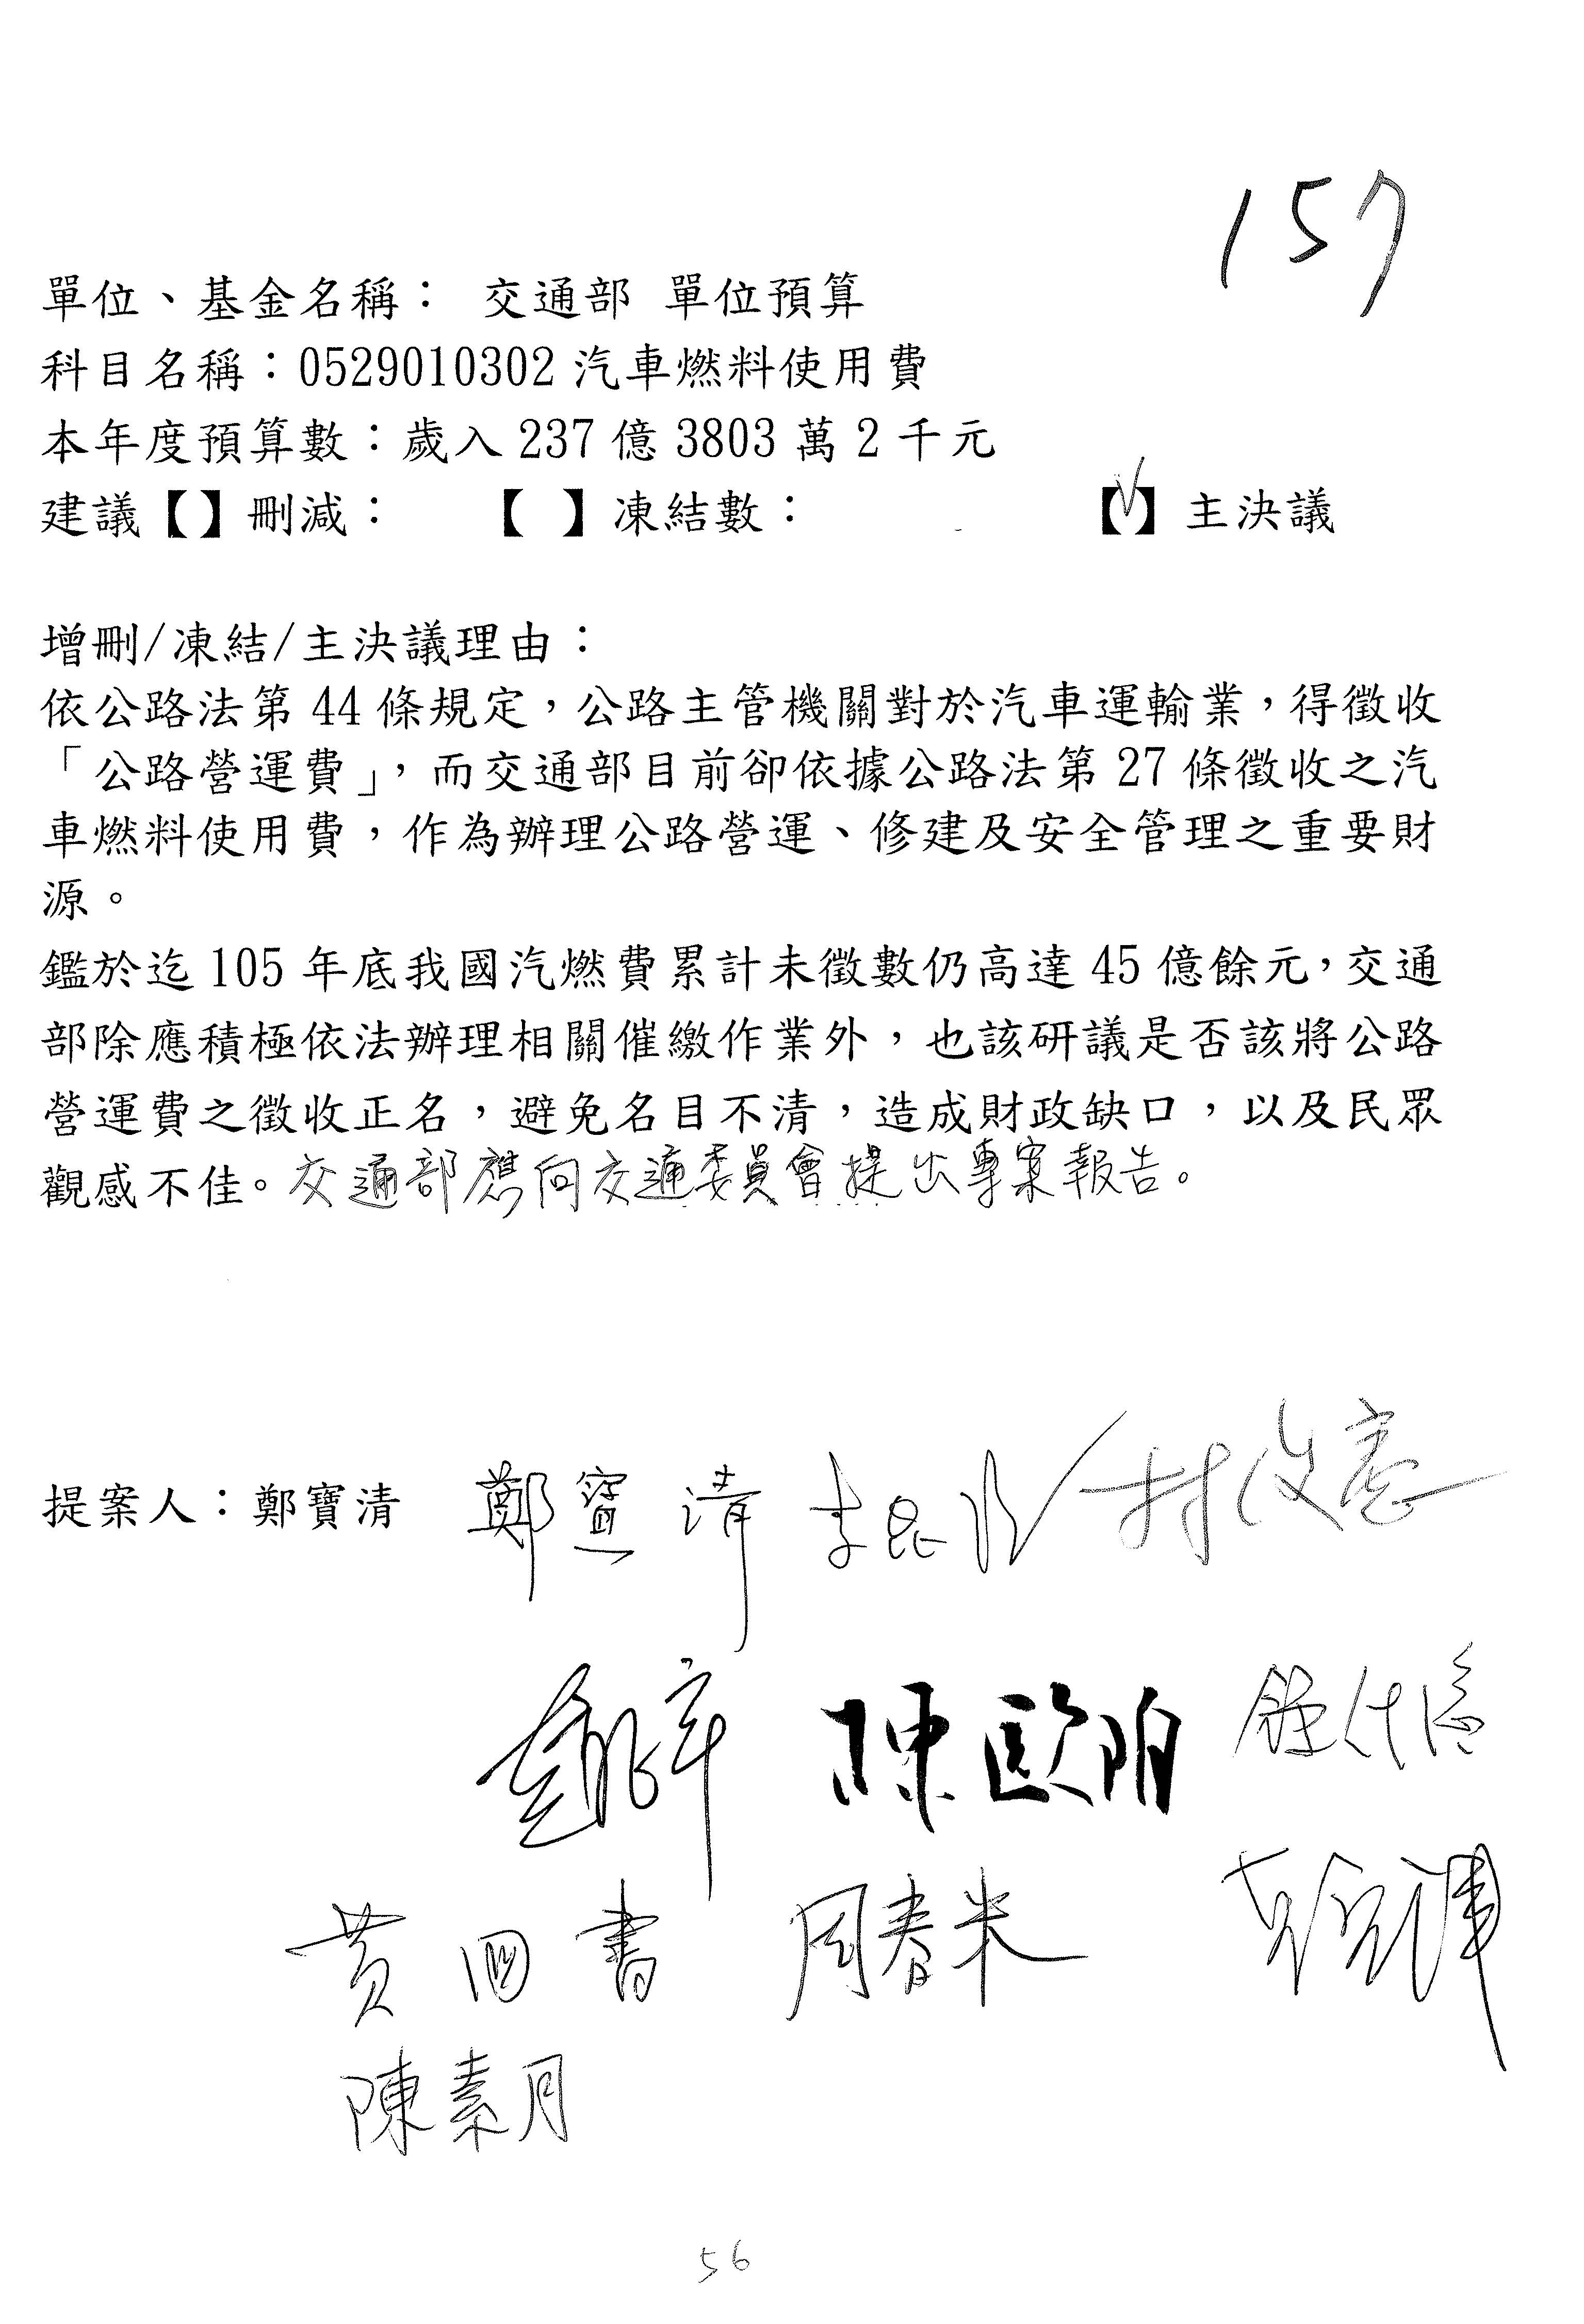 157
單位、基金名稱： 交通部 單位預算
科目名稱：0529010302 汽車燃料使用費
本年度預算數：歲入 237 億 3803 萬 2 千元
建議【】刪減： 【 】凍結數： 【V】主決議
增刪/凍結/主決議理由：
依公路法第 44 條規定，公路主管機關對於汽車運輸業，得徵收
「公路營運費」，而交通部目前卻依據公路法第 27 條徵收之汽
車燃料使用費，作為辦理公路營運、修建及安全管理之重要財
源。
鑑於迄 105 年底我國汽燃費累計未徵數仍高達 45 億餘元，交通
部除應積極依法辦理相關催繳作業外，也該研議是否該將公路
營運費之徵收正名，避免名目不清，造成財政缺口，以及民眾
觀感不佳。交通部應向交通委員會提出專案報告。
提案人：鄭寶清 鄭寶清 李昆澤 林俊憲
陳歐珀
黃國書 周春米
陳素月
56